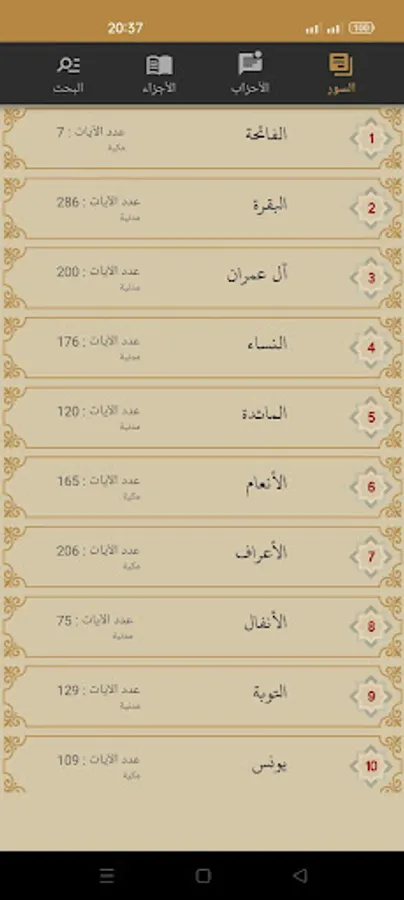 20:37
100
السور
الأحزاب
الأجزاء
البحث
1
الفاتحة
عدد الآيات : 7
مكية
2
البقرة
عدد الآيات : 286
مدنية
3
آل عمران
عدد الآيات : 200
مدنية
4
النساء
عدد الآيات : 176
مدنية
5
المائدة
عدد الآيات : 120
مدنية
6
الأنعام
عدد الآيات : 165
مكية
7
الأعراف
عدد الآيات : 206
مكية
8
الأنفال
عدد الآيات : 75
مدنية
9
التوبة
عدد الآيات : 129
مدنية
10
يونس
عدد الآيات : 109
مكية